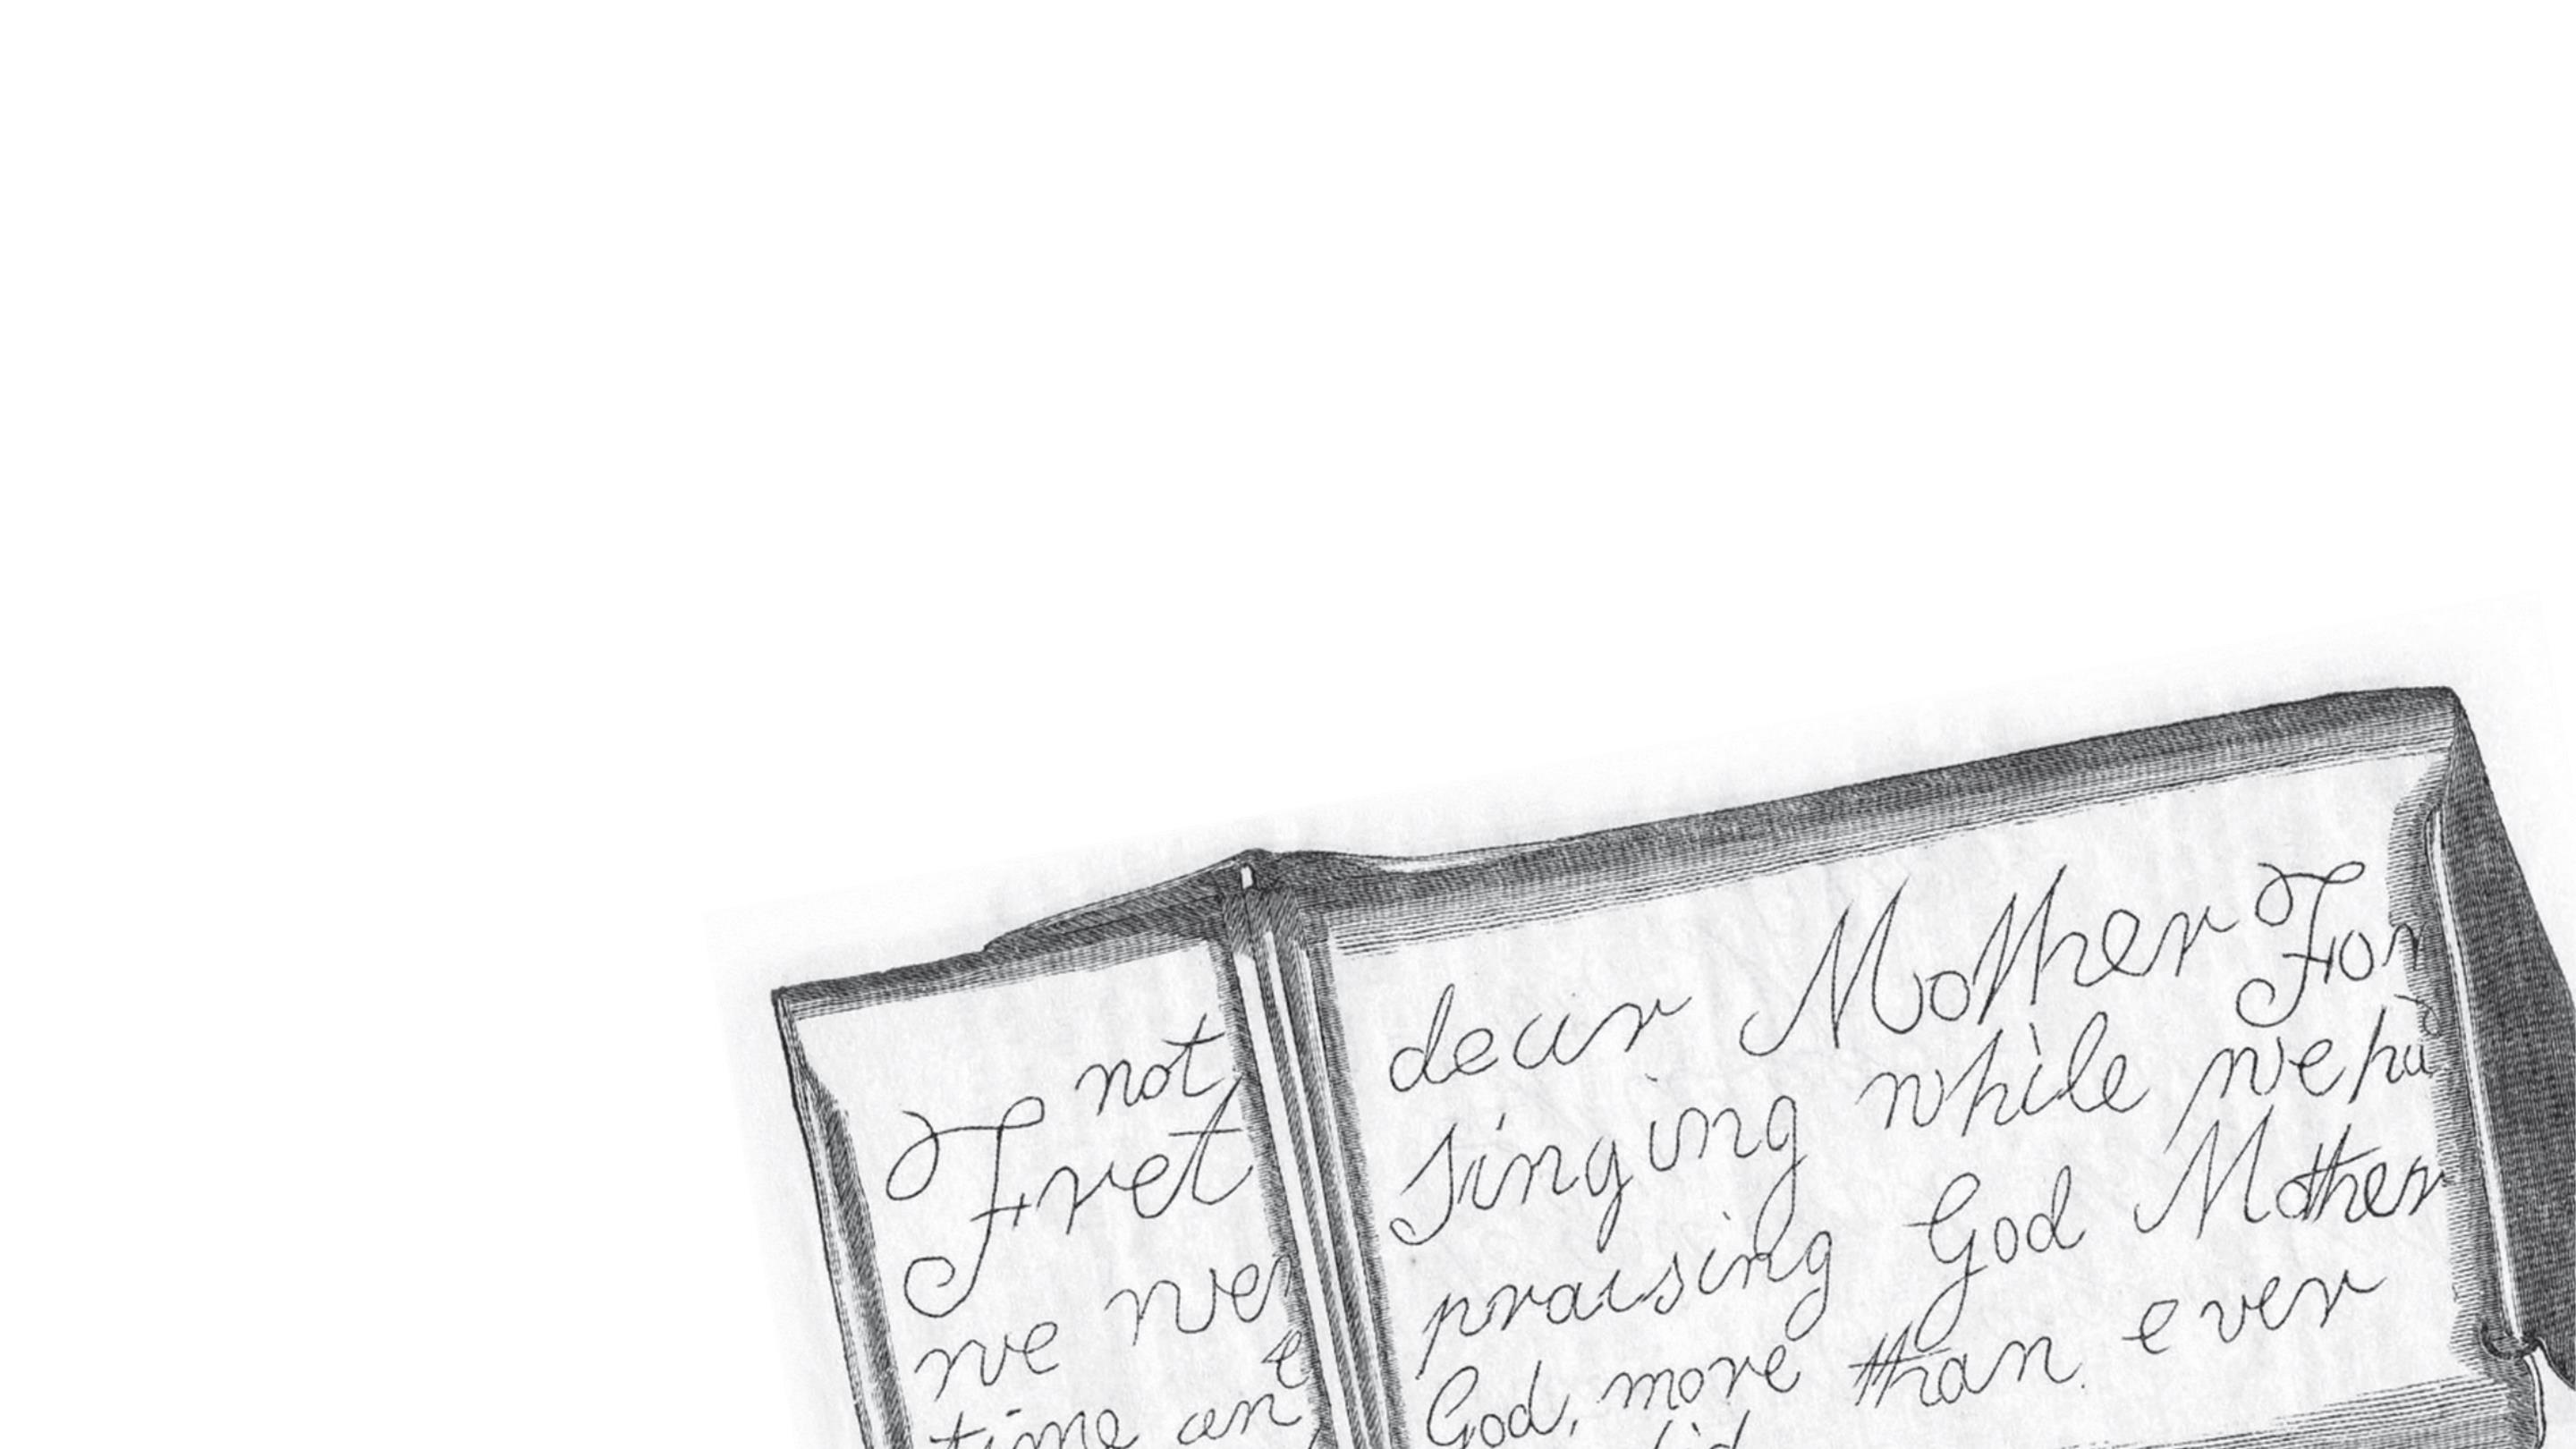 not
Fret
we wer
e
time an
dear Mother For
singing while we ha
praising God Mother
God, more than ever